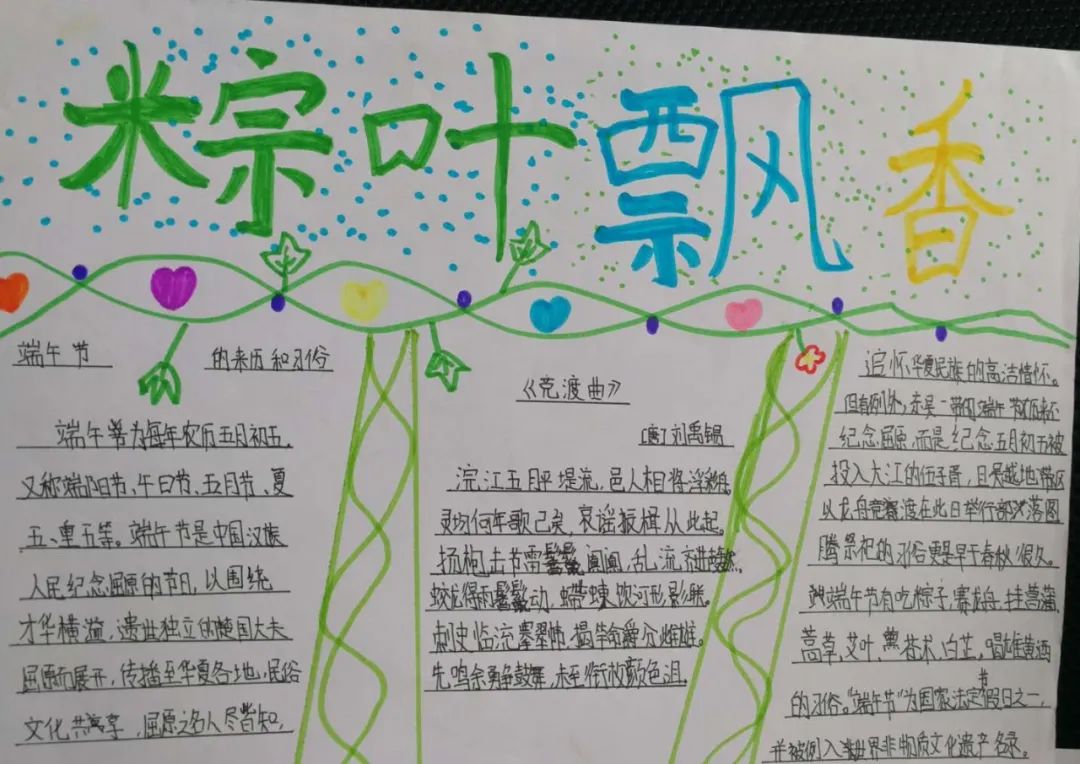 粽叶飘香
端午节 的来历和习俗
端午节为每年农历五月初五,
又称端阳节、午日节、五月节、夏
五、重五等。端午节是中国汉族
人民纪念屈原的节日,以围绕
才华横溢、遗世独立的楚国大夫
屈原而展开,传播至华夏各地,民俗
文化共享,屈原之名人尽皆知,
《竞渡曲》
[唐]刘禹锡
沅江五月平堤流,邑人相将浮彩舟。
灵均何年歌已矣,哀谣振楫从此起。
扬枹击节雷阗阗,乱流齐进声轰然。
蛟龙得雨鬐鬣动,螮蝀饮河形影联。
刺史临流搴翠帏,揭竿命爵分雄雌。
先鸣余勇争鼓舞,未至衔枚颜色沮。
追怀华夏民族的高洁情怀。
但有例外,东吴一带的端午节历来不
纪念屈原,而是纪念五月初五被
投入大江的伍子胥,且吴越地带区
以龙舟竞渡在此日举行部落图
腾祭祀的习俗更是早于春秋很久。
端午节有吃粽子,赛龙舟,挂菖蒲,
蒿草,艾叶,薰苍术,白芷,喝雄黄酒
的习俗。“端午节”为国家法定节假日之一,
并被列入世界非物质文化遗产名录。